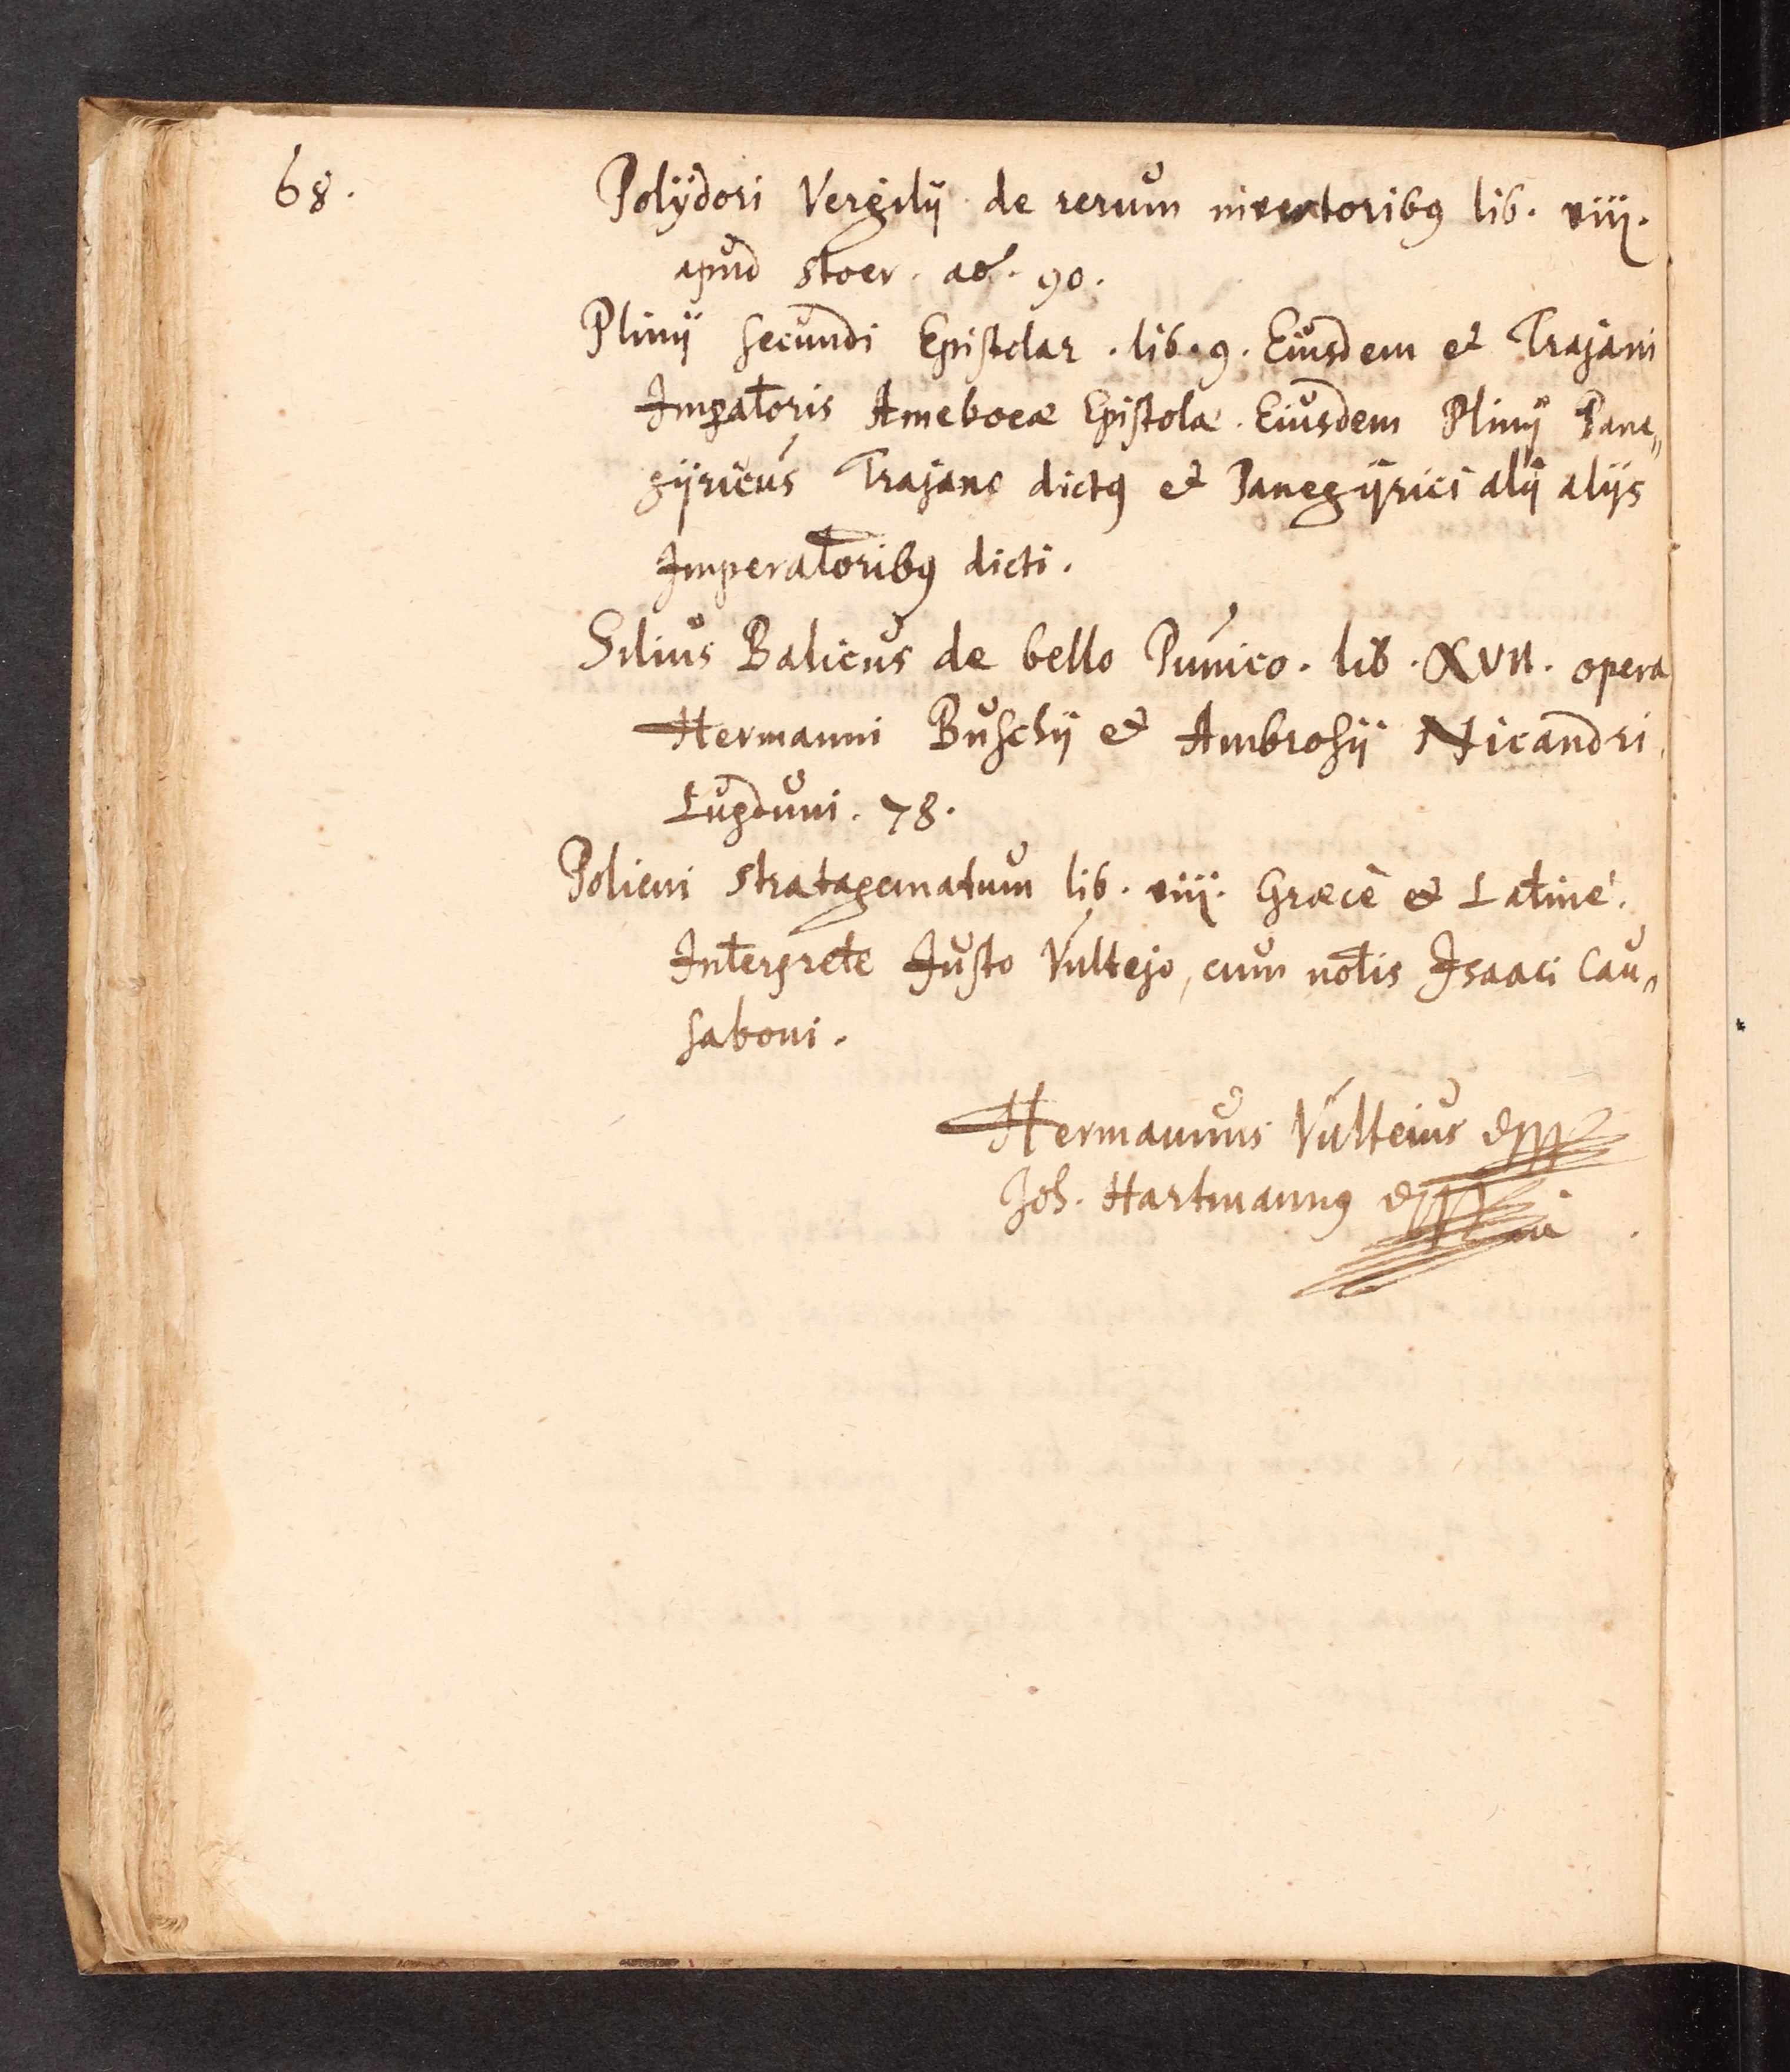 68.
Polÿdori Vergilij de rerum inventoribꝰ lib. viij.
apud stoer. aō. 90.
Plinij secundi Epistolar. lib. 9. Eiusdem et Trajani
Imꝑatoris Ameboeæ Epistolæ. Eiusdem Plinij Pane„
gÿricus Trajano dictꝰ et Panegÿrici alij alijs
Imperatoribꝰ dicti.
Silius Italicus de bello Punico. lib. XVII. opera
Hermanni Buschij et Ambrosij Nicandri.
Lugduni. 78.
Polieni stratagematum lib. viij. Græcè et Latinè.
Interprete Justo Vultejo, cum notis Isaaci Cau„
saboni.
Hermannus Vulteius
Joh. Hartmannꝰ